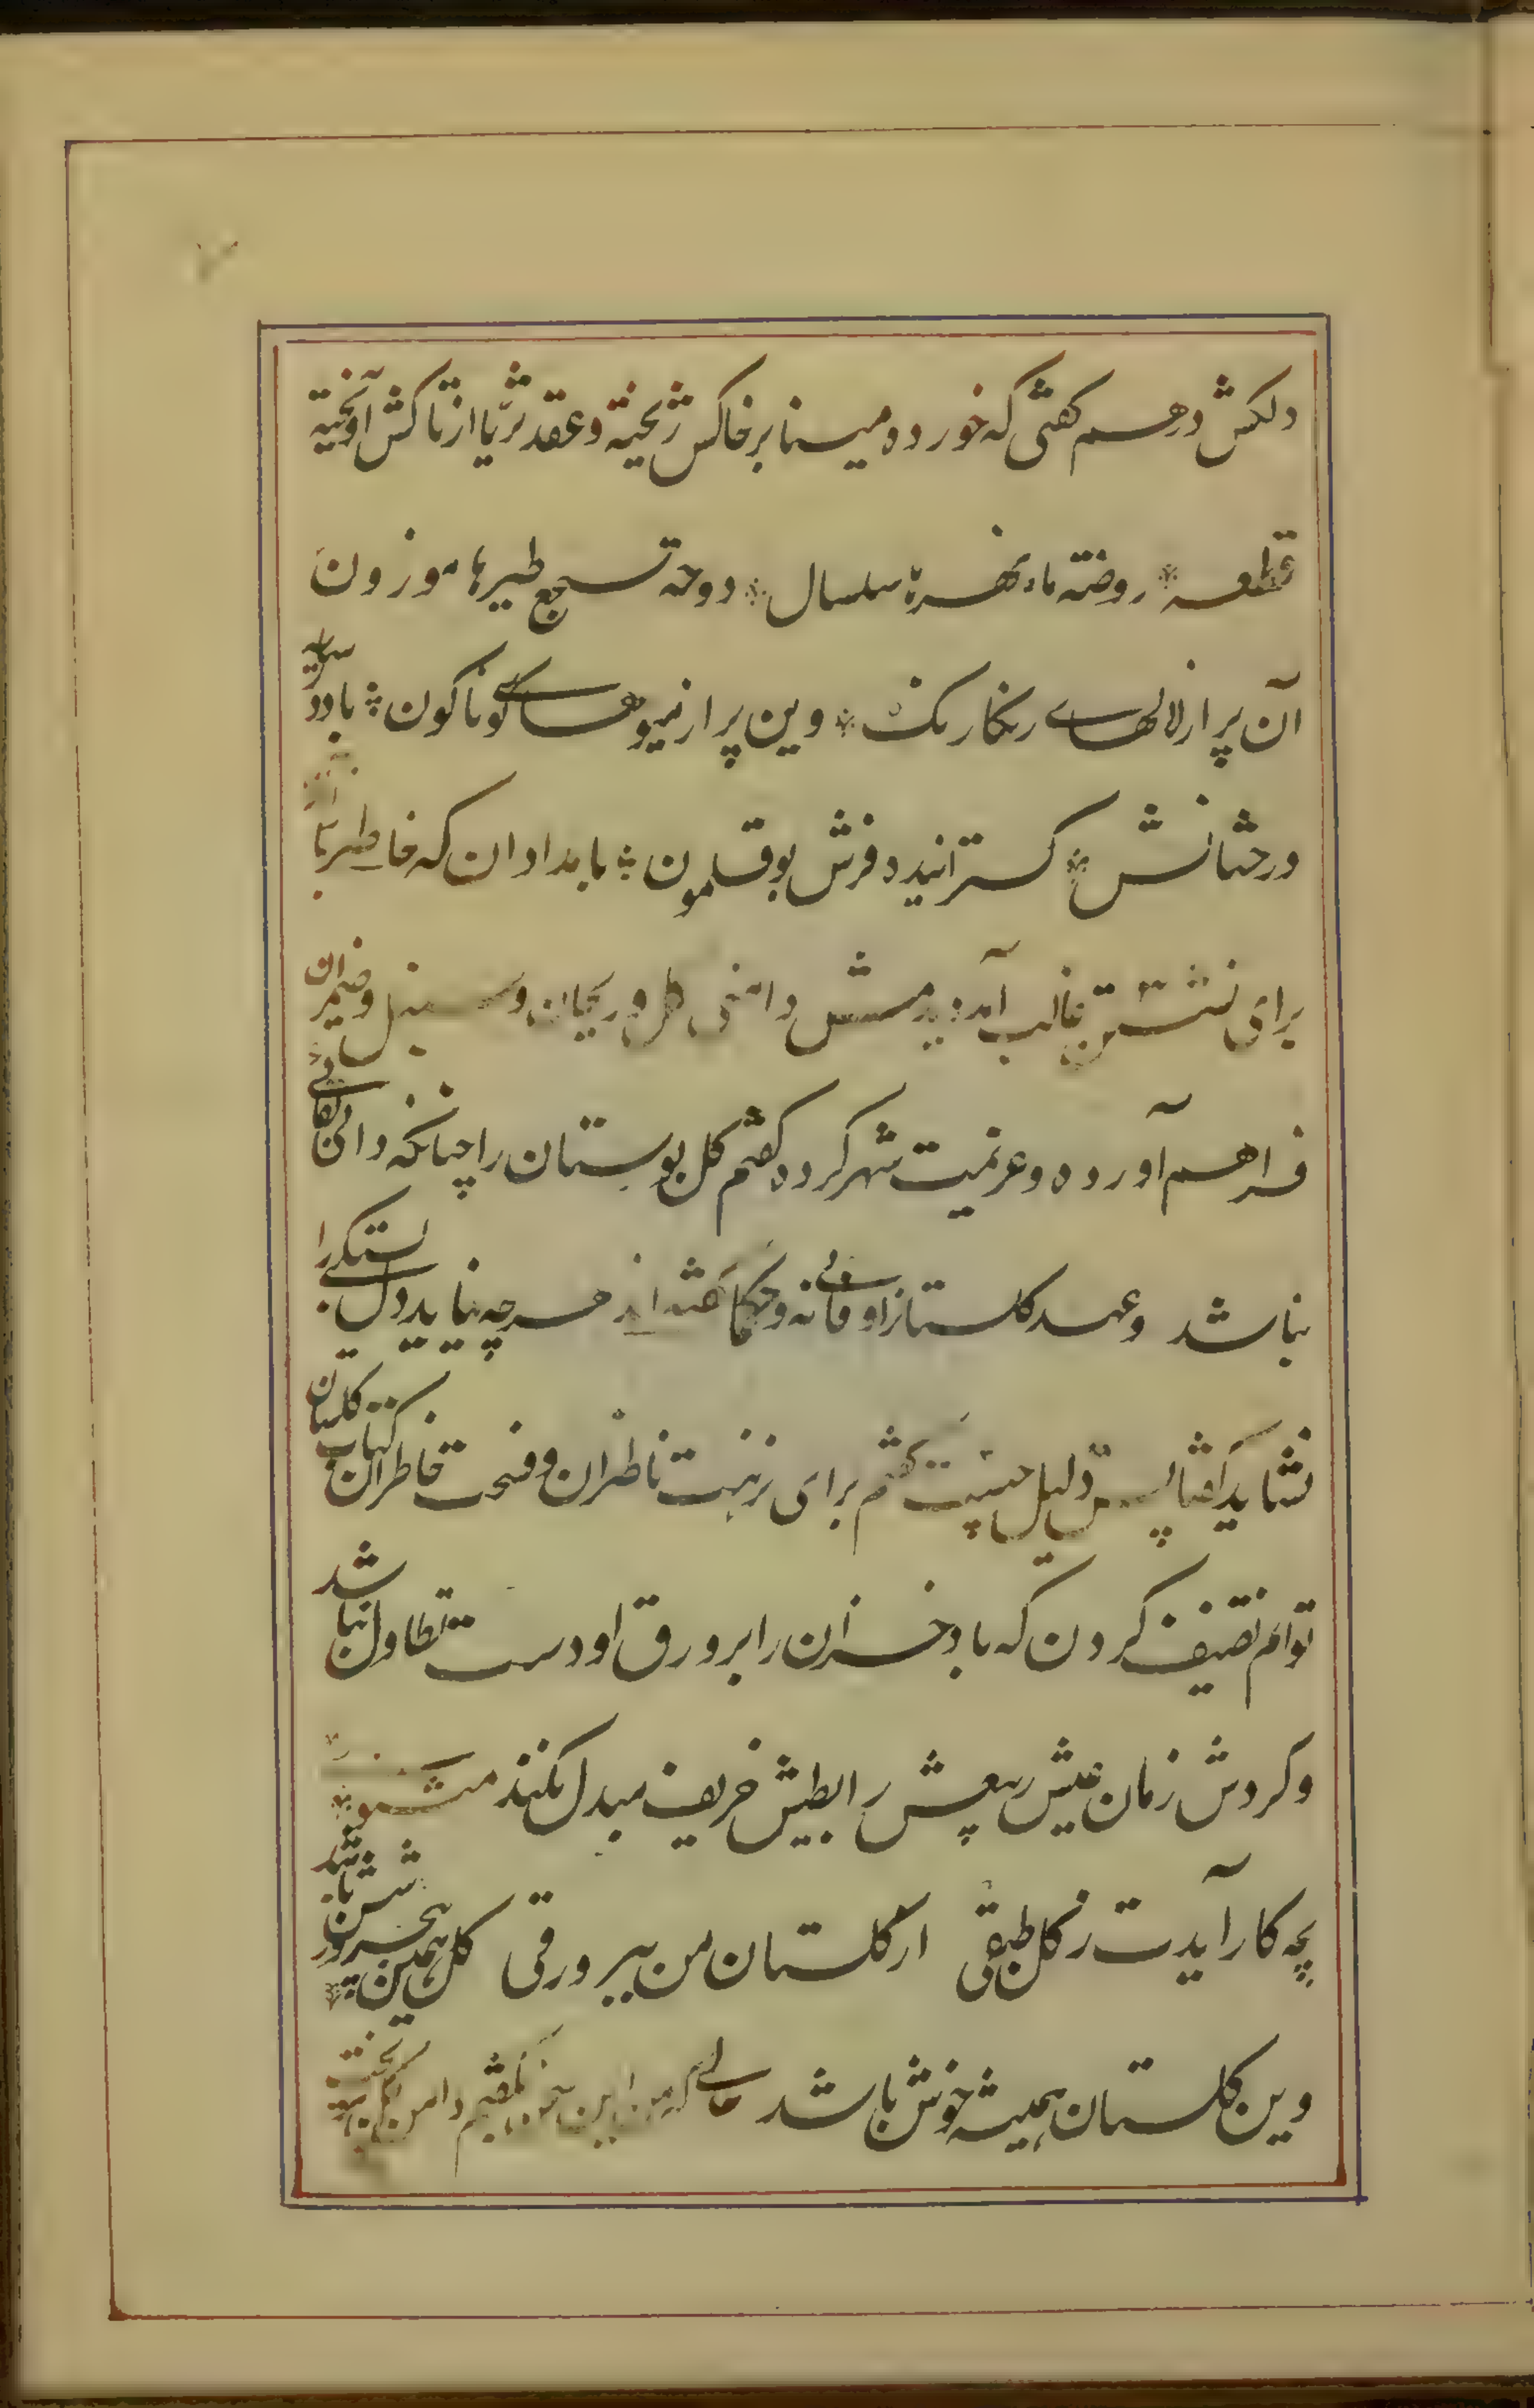 دلکش درهم کفتی که خورده مینا بر خاکش ریخته و عقد ثریا از تاکش آویخته
قطعه روضته ماء نهرها سلسال دوحته سجع طیرها موزون
آن پر از لالهای رنکارنک وین پر از میوهای کوناکون باد در سایه
درختانش کسترانید فرش بوقلمون بامدادان که خاطر باز
برای نشستن غالب آمد دیدمش دامنی کل و ریحان و سنبل و ضیمران
فراهم آورده و عزیمت شهر کرده کفتم کل بوستان را چنانکه دانی بقائی
نباشد و عهد کلستانرا وفائی نه و حکما کفته اند هرچه نپاید دل بستکی را
نشاید کفتا پس دلیل چیست کفتم برای نزهت ناظران و فسحت خاطران کتاب کلستان
توانم تصنیف کردن که باد خزان را بر ورق او دست تطاول نباشد
و کردش زمان عیش ربیعش را بطیش خریف مبدل نکند مثنوی
بچه کار آیدت ز کل طبقی از کلستان من ببر ورقی کل همین پنج روز و شش باشد
وین کلستان همیشه خوش باشد حالی که من این سخن بکفتم دامن کل بریخت